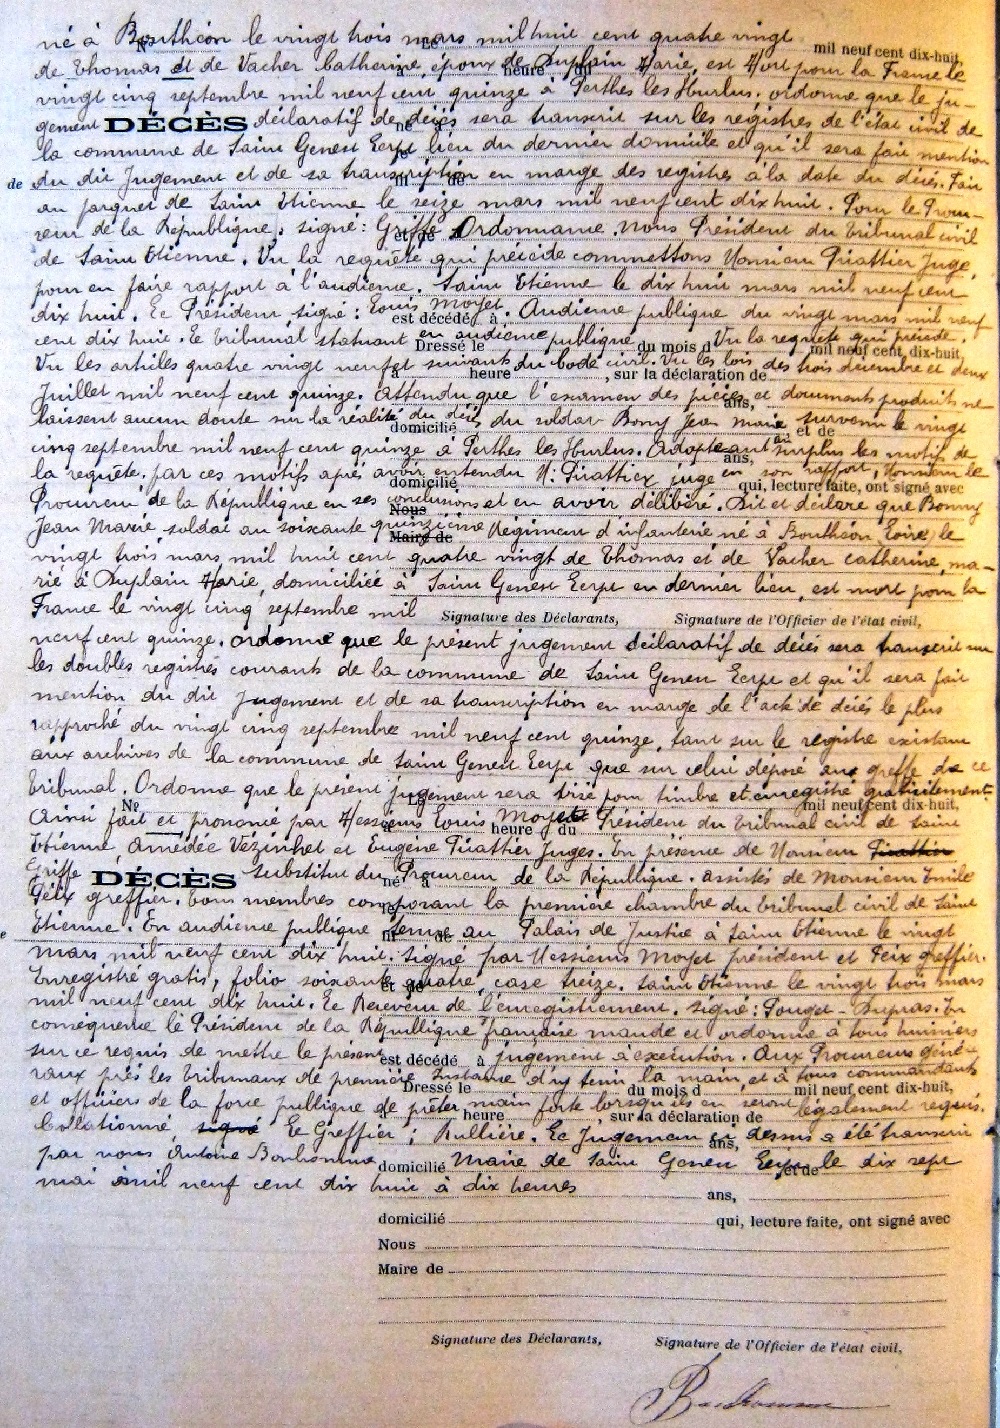 né à Bouthéon le vingt trois mars mil huit cent quatre vingt
N° Le mil neuf cent dix-huit,
de Thomas et de Vacher Catherine, époux de Duplain Marie, est Mort pour la France le
à heure du
vingt cinq septembre mil neuf cent quinze à Perthes les Hurlus. ordonne que le ju-
gement DÉCÈS déclaratif de décès sera transcrit sur les régistres de l'état civil de
né à
la commune de Saint Genest Lerpt lieu du dernier domicile et qu'il sera fait mention
le
de du dit Jugement et de sa transcription en marge des registres à la date du décès. Fait
fil de
au parquet de Saint Etienne le seize mars mil neuf cent dix huit. Pour le Procu-
reur de la République, signé: Griffe Ordonnance. Nous Président du tribunal civil
et de
de Saint Etienne. Vu la requête qui précède commettons Monsieur Piattier Juge,
pour en faire rapport à l'audience. Saint Etienne le dix huit mars mil neuf cent
dix huit. Le Président, signé: Louis Moyet. Audience publique du vingt mars mil neuf
est décédé à
cent dix huit. Le tribunal statuant en audience publique Vu la requête qui précède.
Dressé le du mois d mil neuf cent dix-huit,
Vu les articles quatre vingt neuf et suivants du Code civil. Vu les lois des trois décembre et deux
à heure , sur la déclaration de
Juillet mil neuf cent quinze. Attendu que l'examen des pièces et documents produits ne
ans,
laissent aucun doute sur la réalité du décès du soldat Bonny Jean Marie survenu le vingt
domicilié et de
cinq septembre mil neuf cent quinze à Perthes les Hurlus. Adoptant au surplus les motifs de
ans,
la requête. par ces motifs après avoir entendu M. Piattier juge en son rapport, Monsieur le
domicilié qui, lecture faite, ont signé avec
Procureur de la République en ses conclusions et en avoir délibéré. Dit et déclare que Bonny
Nous
Jean Marie, soldat au soixante quinzième Régiment d'infanterie né à Bouthéon (Loire) le
Maire de
vingt trois mars mil huit cent quatre vingt de Thomas et de Vacher Catherine, ma-
rié à Duplain Marie, domiciliée à Saint Genest Lerpt en dernier lieu, est mort pour la
France le vingt cinq septembre mil Signature des Déclarants, Signature de l'Officier de l'état civil,
neuf cent quinze. Ordonne que le présent jugement déclaratif de décès sera transcrit sur
les doubles registres courants de la commune de Saint Genest Lerpt et qu'il sera fait
mention du dit Jugement et de sa transcription en marge de l'acte de décès le plus
rapproché du vingt cinq septembre mil neuf cent quinze, tant sur le registre existant
aux archives de la commune de Saint Genest Lerpt que sur celui déposé au greffe de ce
tribunal. Ordonne que le présent jugement sera visé pour timbre et enregistré gratuitement.
N° Le mil neuf cent dix-huit,
Ainsi fait et prononcé par Messieurs Louis Moyet Président du tribunal civil de Saint
à heure du
Etienne, Amédée Vézinhet et Eugène Piattier Juges. En présence de Monsieur Piattier
Griffe DÉCÈS substitut du Procureur de la République. assistés de Monsieur Emile
né à
Peix greffier. Tous membres composant la première chambre du tribunal civil de Saint
le
Etienne. En audience publique tenue au Palais de Justice à Saint Etienne le vingt
e fil de
mars mil neuf cent dix huit. Signé par Messieurs Moyet président et Peix greffier.
Enregistré gratis, folio soixante quatre, case treize. Saint Etienne le vingt trois mars
et de
mil neuf cent dix huit. Le Receveur de l'enregistrement. signé: Pouget-Dupras. En
conséquence le Président de la République française mande et ordonne à tous huissiers
sur ce requis de mettre le présent jugement à exécution. Aux Procureurs géné-
est décédé à
raux près les tribunaux de première Instance d'y tenir la main, et à tous commandants
Dressé le du mois d mil neuf cent dix-huit,
et officiers de la force publique de prêter main forte lorsqu'ils en seront légalement requis.
à heure , sur la déclaration de
Collationné, signé Le Greffier; Rullière. Le Jugement ci-dessus a été transcrit
ans,
par nous Antoine Bonhomme Maire de Saint Genest Lerpt le dix sept
domicilié et de
mai mil neuf cent dix huit à dix heures
ans,
domicilié qui, lecture faite, ont signé avec
Nous
Maire de
Signature des Déclarants, Signature de l'Officier de l'état civil,
Bonhomme